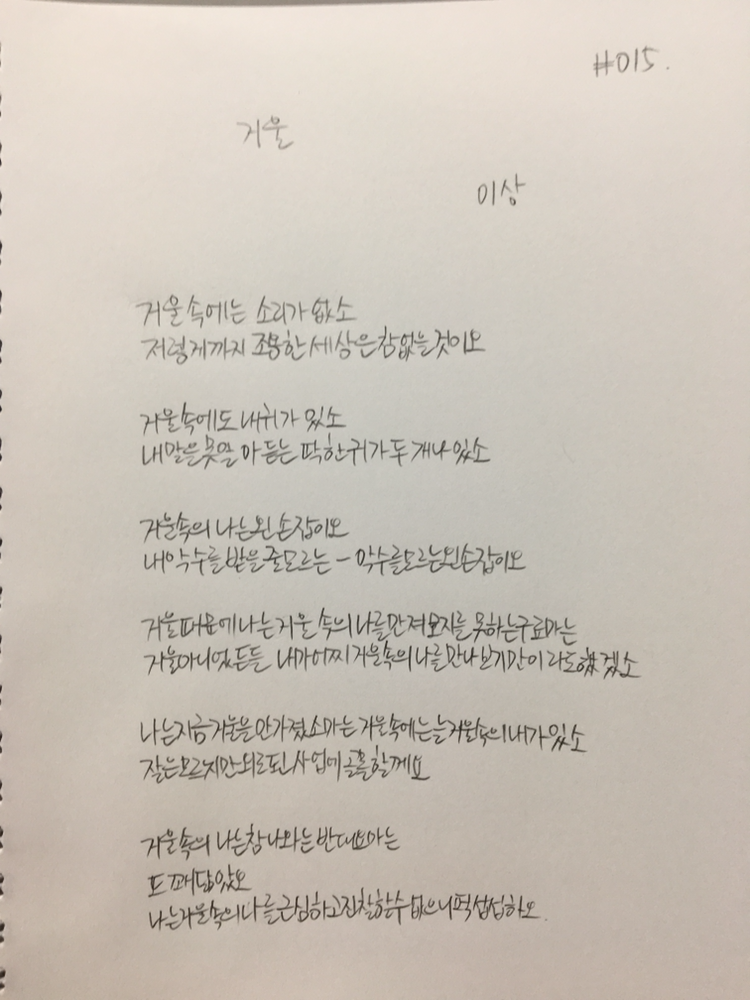 #015.
거울
이상
거울속에는 소리가 없소
저렇게까지 조용한 세상은 참 없을것이오
거울속에도 내귀가 있소
내말을 못알아듣는 딱한귀가 두개나 있소
거울속의 나는 왼손잡이오
내악수를 받을줄모르는 - 악수를모르는왼손잡이오
거울때문에 나는 거울속의 나를만져보지를 못하는구료마는
거울아니었든들 내가어찌 거울속의 나를 만나보기만이라도 했겠소
나는지금 거울을 안가졌소마는 거울속에는 늘거울속의 내가있소
잘은모르지만 외로된 사업에 골몰할게요
거울속의 나는참나와는 반대요마는
또 꽤닮았오
나는거울속의나를 근심하고진찰할수 없으니 퍽 섭섭하오.